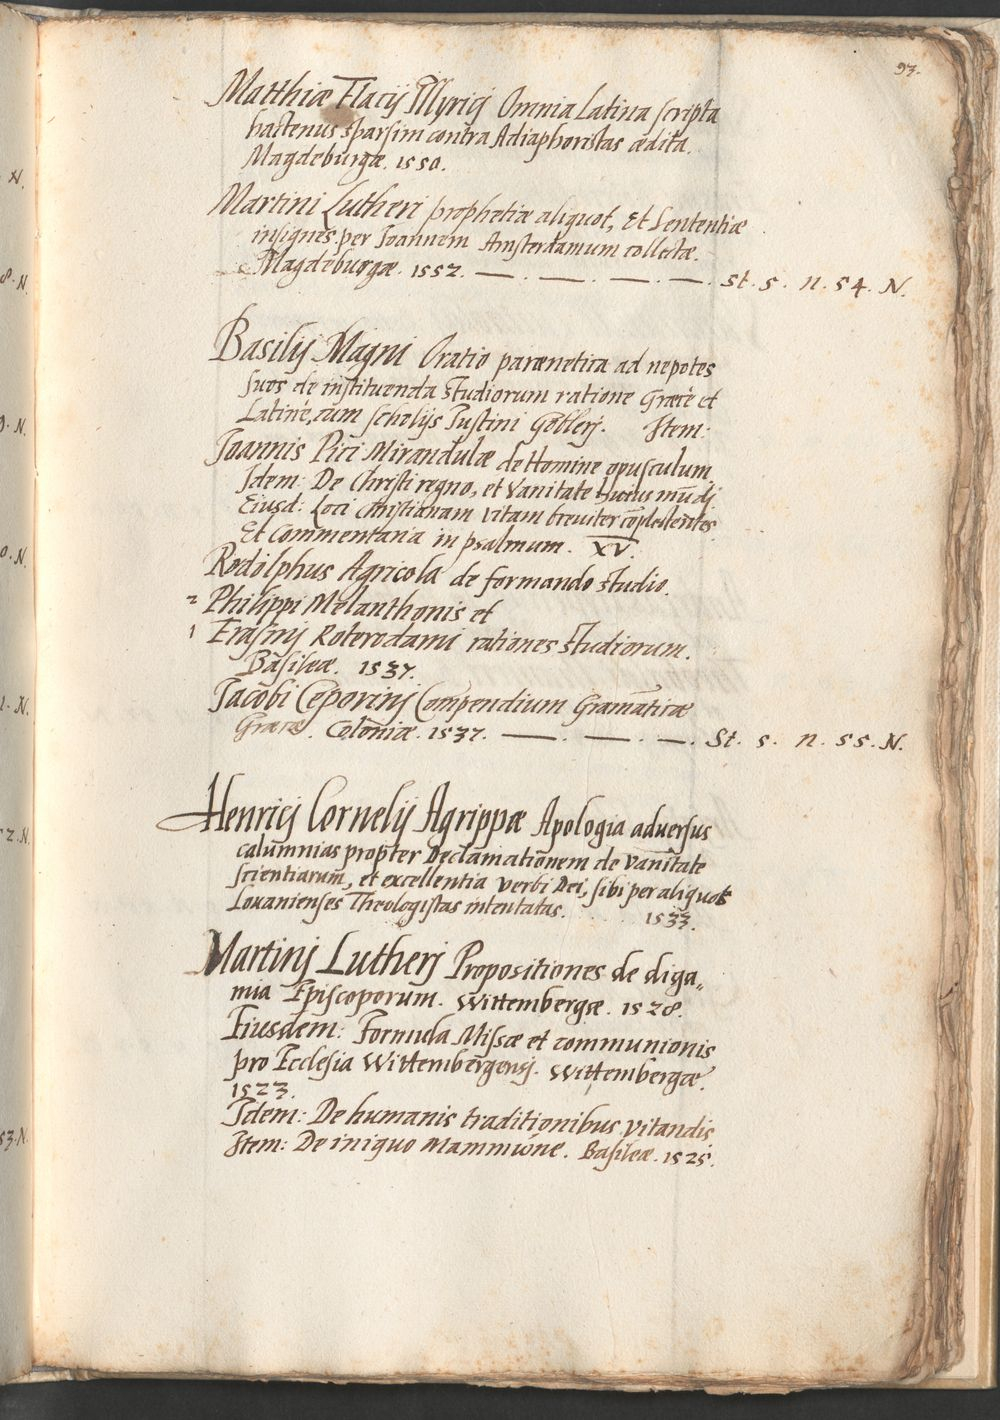 93.
Matthiæ Flacij Illyrici Omnia Latina scripta
hactenus sparsim contra Adiaphoristas ædita.
Magdeburgæ. 1550.
Martini Lutheri prophetiæ aliquot, Et Sententiæ
insignes per Joannem Amsterdamum collectæ.
Magdeburgæ. 1552. —. —. —. —. St. s. n. 54. N.
Basilij Magni Oratio parænetica ad nepotes
suos de instituenda studiorum ratione Græcè et
Latinè, cum scholijs Justini Gobleri. Item:
Joannis Pici Mirandulæ de Homine opusculum.
Idem: De Christi regno, et Vanitate huius mūdi
Eiusd: Loci Christianam vitam breuiter cōplectentes
Et Commentaria in psalmum. XV.
Rodolphus Agricola de formando studio.
2 Philippi Melanthonis et
1 Erasmi Roterodami rationes studiorum.
Basileæ. 1537.
Jacobi Ceporini Compendium Gramaticæ
Græcæ. Coloniæ. 1537. —. —. —. St. s. n. 55. N.
Henrici Cornelij Agrippæ Apologia aduersus
calumnias propter Declamationem de Vanitate
scientiarum, et excellentia verbi Dei, sibi per aliquos
Louanienses Theologistas intentatas. 1533.
Martini Lutheri Propositiones de diga„
mia Episcoporum. Wittembergæ. 1528.
Eiusdem: Formula Missæ et communionis
pro Ecclesia Wittembergensi. Wittembergæ.
1523.
Idem: De humanis traditionibus vitandis
Item: De iniquo Mammone. Basileæ. 1525.